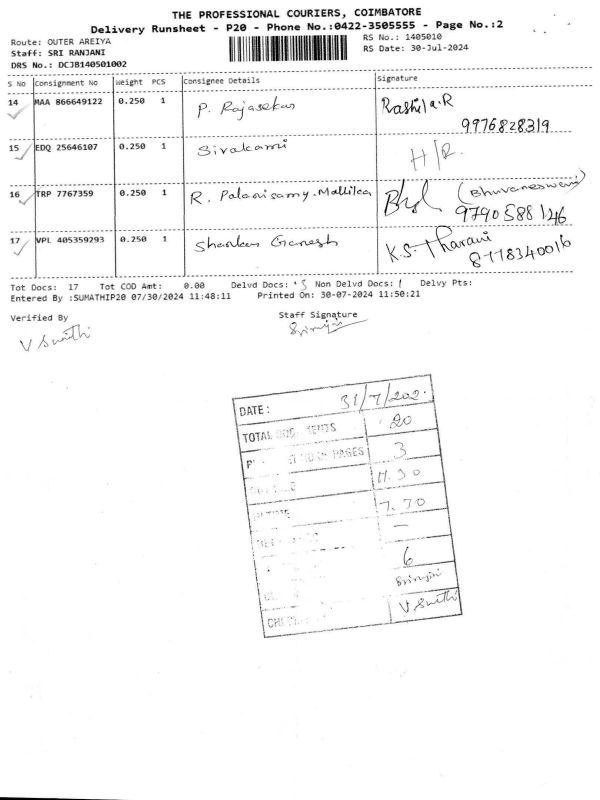 THE PROFESSIONAL COURIERS, COIMBATORE
Delivery Runsheet - P20 - Phone No.:0422-3505555 - Page No.:2
Route: OUTER AREIYA
RS No.: 1405010
Staff: SRI RANJANI
RS Date: 30-Jul-2024
DRS No.: DCJB140501002
S No Consignment No Weight PCS Consignee Details Signature
14 MAA 866649122 0.250 1 P. Rajasekar
9976828319
15 EDQ 25646107 0.250 1 Sivakami H/R.
16 TRP 7767359 0.250 1 R. Palanisamy. Mallika (Bhuvaneswari)
9790588146
17 VPL 405359293 0.250 1 Shankar Ganesh K.S. Tharani
8778340016
Tot Docs: 17 Tot COD Amt: 0.00 Delvd Docs: Non Delvd Docs: Delvy Pts:
Entered By :SUMATHIP20 07/30/2024 11:48:11 Printed On: 30-07-2024 11:50:21
Verified By Staff Signature
V Smithi
DATE : 31/7/202
TOTAL 20
PAGES 3
11.30
-
6
V Smithi